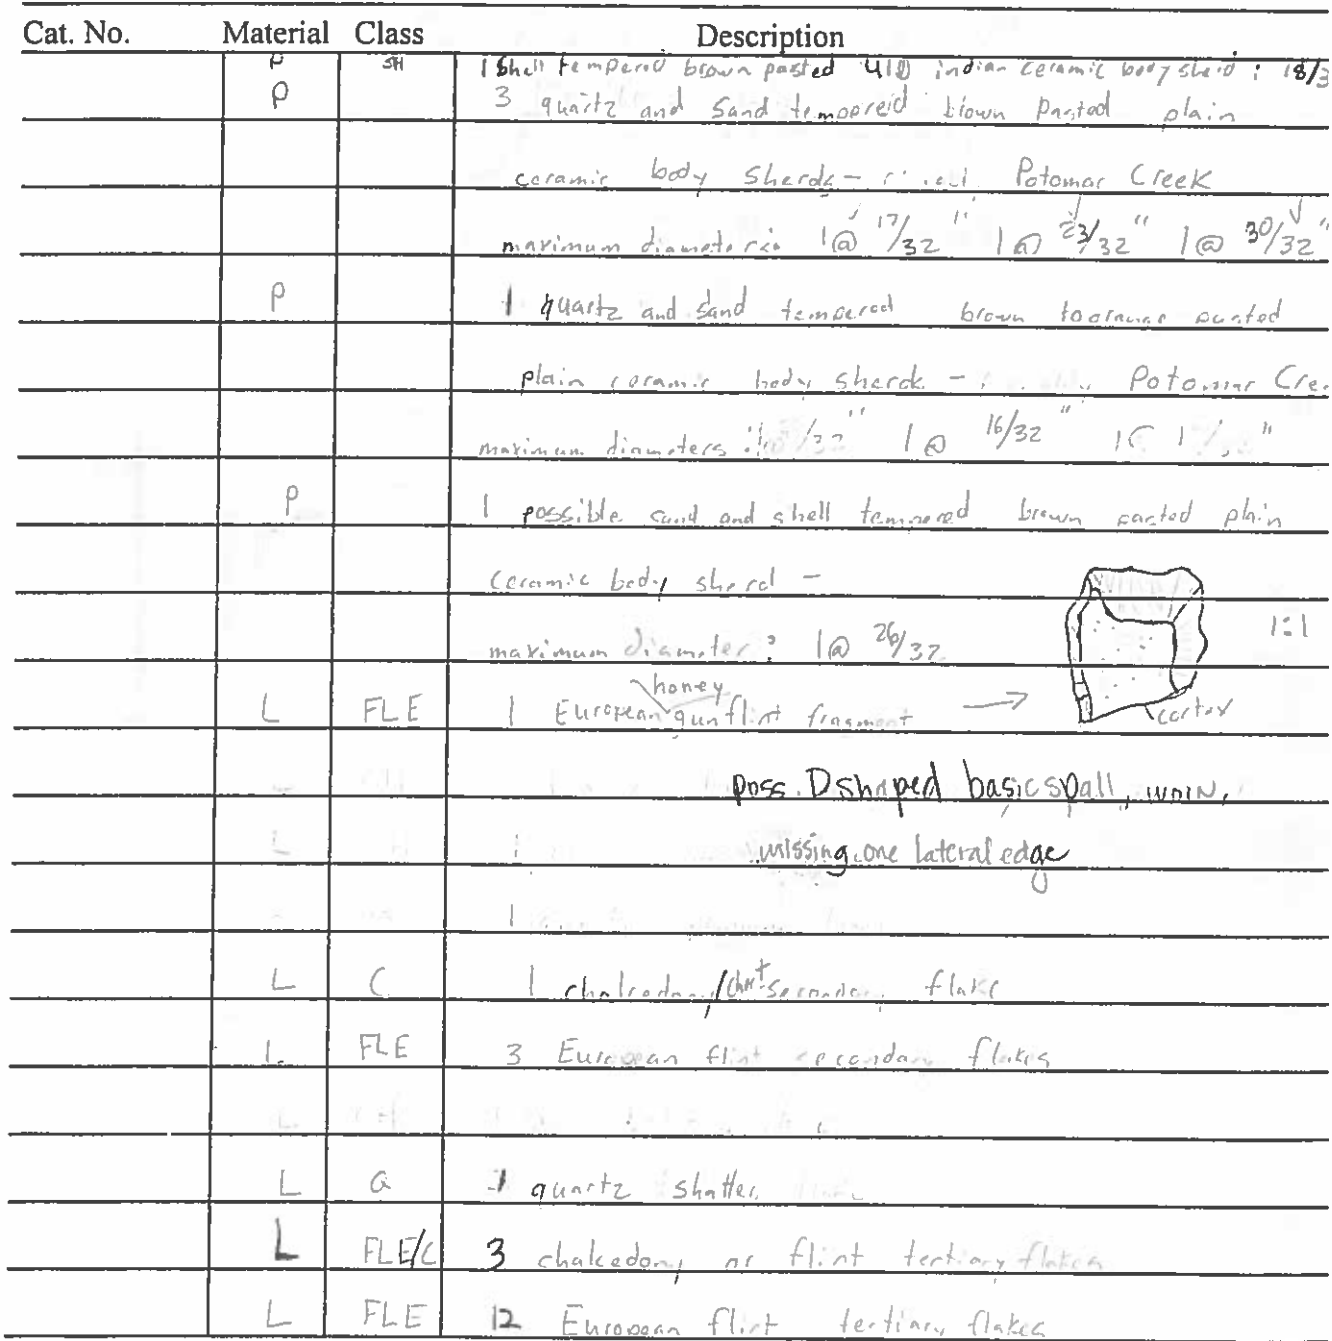 Cat. No. Material Class Description
P SH 1 Shell tempered brown pasted UID indian ceramic body sherd : 18/3
P 3 quartz and sand tempered brown pasted plain
ceramic body sherds - Potomac Creek
maximum diameters 1@ 17/32" 1@ 23/32" 1@ 30/32"
P 1 quartz and sand tempered brown to orange pasted
plain ceramic body sherds - Potomac Cree
maximum diameters : 1@ /32" 1@ 16/32" 1@ "
P 1 possible sand and shell tempered brown pasted plain
ceramic body sherd -
maximum diameter: 1@ 26/32
1:1
honey
L FLE 1 European gunflint fragment → cortex
poss. D shaped basic spall, worn,
missing one lateral edge
L C 1 chalcedony/chert secondary flake
L FLE 3 European flint secondary flakes
L Q 1 quartz shatter
L FLE/C 3 chalcedony or flint tertiary flakes
L FLE 12 European flint tertiary flakes